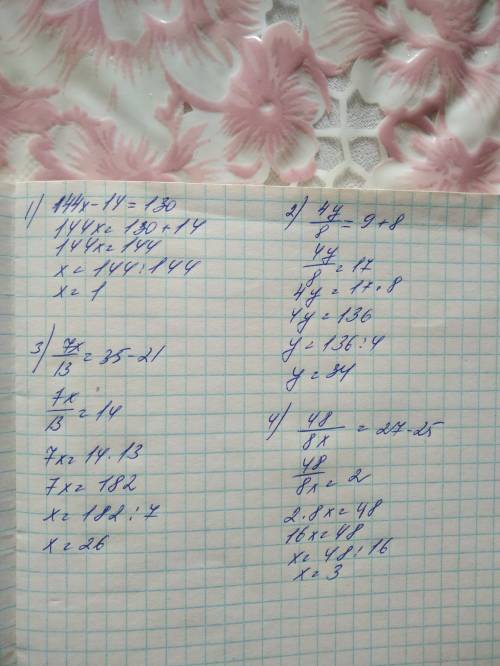 1) 144x-14=130
144x=130+14
144x=144
x=144:144
x=1
2) 4y/8=9+8
4y/8=17
4y=17·8
4y=136
y=136:4
y=34
3) 7x/13=35-21
7x/13=14
7x=14·13
7x=182
x=182:7
x=26
4) 48/8x=27-25
48/8x=2
2·8x=48
16x=48
x=48:16
x=3